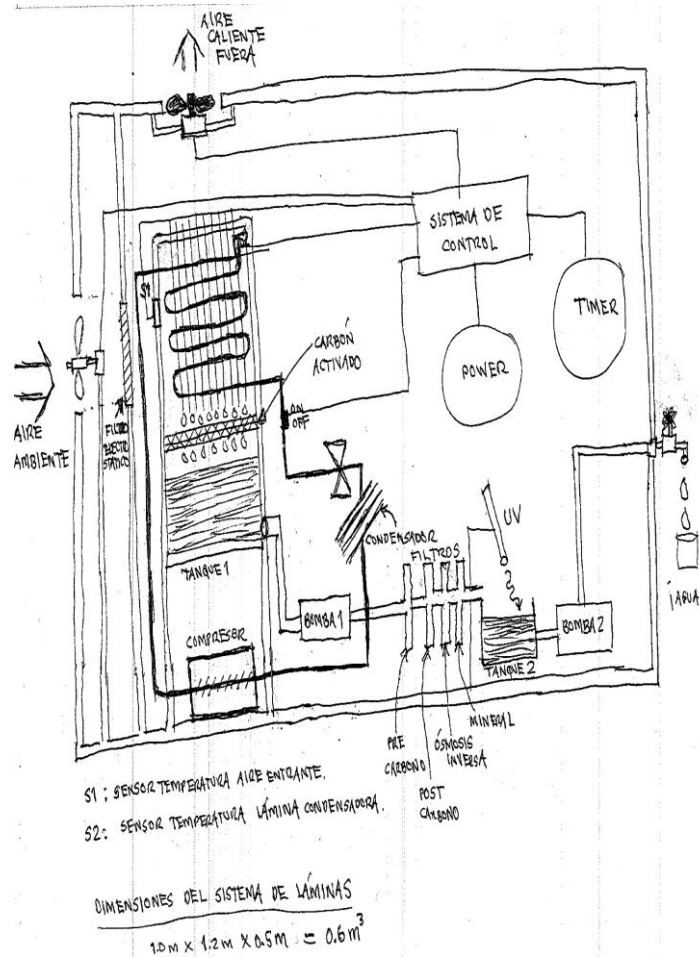 AIRE
CALIENTE
FUERA
SISTEMA DE
CONTROL
TIMER
POWER
S1
CARBÓN
ACTIVADO
ON
OFF
AIRE
AMBIENTE
FILTRO
ELECTRO
STÁTICO
CONDENSADOR
FILTROS
UV
TANQUE 1
BOMBA 1
BOMBA 2
TANQUE 2
¡AGUA
COMPRESOR
PRE
CARBONO
POST
CARBONO
ÓSMOSIS
INVERSA
MINERAL
S1: SENSOR TEMPERATURA AIRE ENTRANTE.
S2: SENSOR TEMPERATURA LÁMINA CONDENSADORA.
DIMENSIONES DEL SISTEMA DE LÁMINAS
1.0 m x 1.2 m x 0.5 m = 0.6 m³